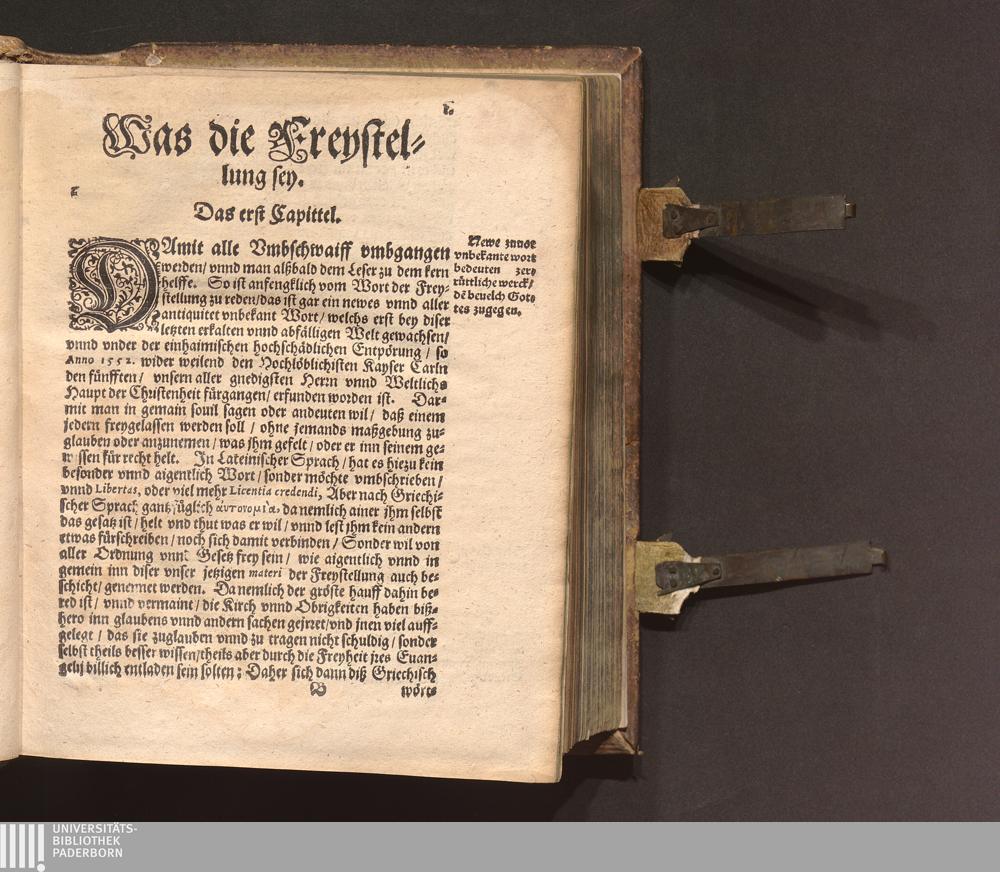 1.
Was die Freystel-
lung sey.
Das erst Capittel.
DAmit alle Vmbschwaiff vmbgangen
werden/ vnnd man alßbald dem Leser zu dem kern
helffe. So ist anfengklich vom Wort der Frey-
stellung zu reden/das ist gar ein newes vnnd aller
antiquitet vnbekant Wort/ welchs erst bey diser
letzten erkalten vnnd abfälligen Welt gewachsen/
vnnd vnder der einhaimischen hochschädlichen Entpörung / so
Anno 1552. wider weilend den Hochlöblichisten Kayser Carln
den fünfften/ vnsern aller gnedigsten Herrn vnnd Weltlichs
Haupt der Christenheit fürgangen/ erfunden worden ist. Dar-
mit man in gemain souil sagen oder andeuten wil/ daß einem
jedern freygelassen werden soll / ohne jemands maßgebung zu-
glauben oder anzunemen / was jhm gefelt / oder er inn seinem ge-
wissen für recht helt. In Lateinischer Sprach / hat es hiezu kein
besonder vnnd aigentlich Wort / sonder möchte vmbschrieben /
vnnd Libertas, oder viel mehr Licentia credendi, Aber nach Griechi-
scher Sprach gantz füglich αυτονομία, da nemlich ainer jhm selbst
das gesatz ist / helt vnd thut was er wil / vnnd lest jhm kein andern
etwas fürschreiben / noch sich damit verbinden / Sonder wil von
aller Ordnung vnnd Gesetz frey sein / wie aigentlich vnnd in
gemein inn diser vnser jetzigen materi der Freystellung auch be-
schicht/ genennet werden. Da nemlich der gröste hauff dahin be-
red ist / vnnd vermaint / die Kirch vnnd Obrigkeiten haben biß-
hero inn glaubens vnnd andern sachen gejrret/vnd jnen viel auff-
gelegt / das sie zuglauben vnnd zu tragen nicht schuldig / sonder
selbst theils besser wissen/theils aber durch die Freyheit jres Euan-
gelij billich entladen sein solten: Daher sich dann diß Griechisch
B wörts
Newe zuuor
vnbekante wort
bedeuten zer-
rüttliche werck/
dē beuelch Got-
tes zugegen.
UNIVERSITÄTS-
BIBLIOTHEK
PADERBORN